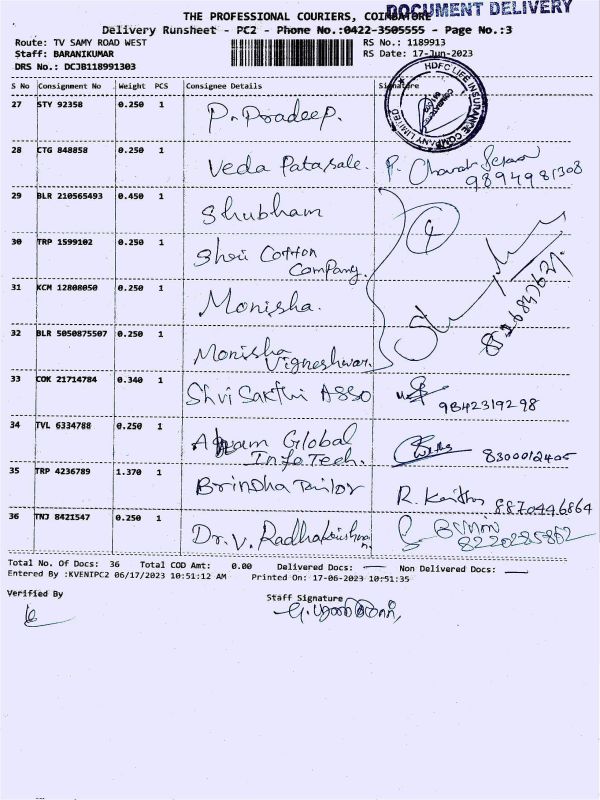 DOCUMENT DELIVERY
THE PROFESSIONAL COURIERS, COIMBATORE
Delivery Runsheet - PC2 - Phone No.:0422-3505555 - Page No.:3
Route: TV SAMY ROAD WEST
RS No.: 1189913
Staff: BARANIKUMAR
RS Date: 17-Jun-2023
DRS No.: DCJB118991303
HDFC LIFE INSURANCE COMPANY LIMITED
S No Consignment No Weight PCS Consignee Details Signature
27 STY 92358 0.250 1 P. Pradeep.
28 CTG 848858 0.250 1 Veda Patasale. P.
9894981308
29 BLR 210565493 0.450 1 Shubham
4
30 TRP 1599102 0.250 1 Shri Cotton
Company.
31 KCM 12808050 0.250 1 Monisha.
32 BLR 5050875507 0.250 1 Monisha
Vigneshwar.
33 COK 21714784 0.340 1 Shri Sakthi ASSO
9842319298
34 TVL 6334788 0.250 1 Global
Info Tech.
8300012405
35 TRP 4236789 1.370 1 Brindha Tailor R.
8870446864
36 TNJ 8421547 0.250 1 Dr. V. Radhakrishnan.
8220285862
Total No. Of Docs: 36 Total COD Amt: 0.00 Delivered Docs: Non Delivered Docs:
Entered By :KVENIPC2 06/17/2023 10:51:12 AM Printed On: 17-06-2023 10:51:35
Verified By
Staff Signature